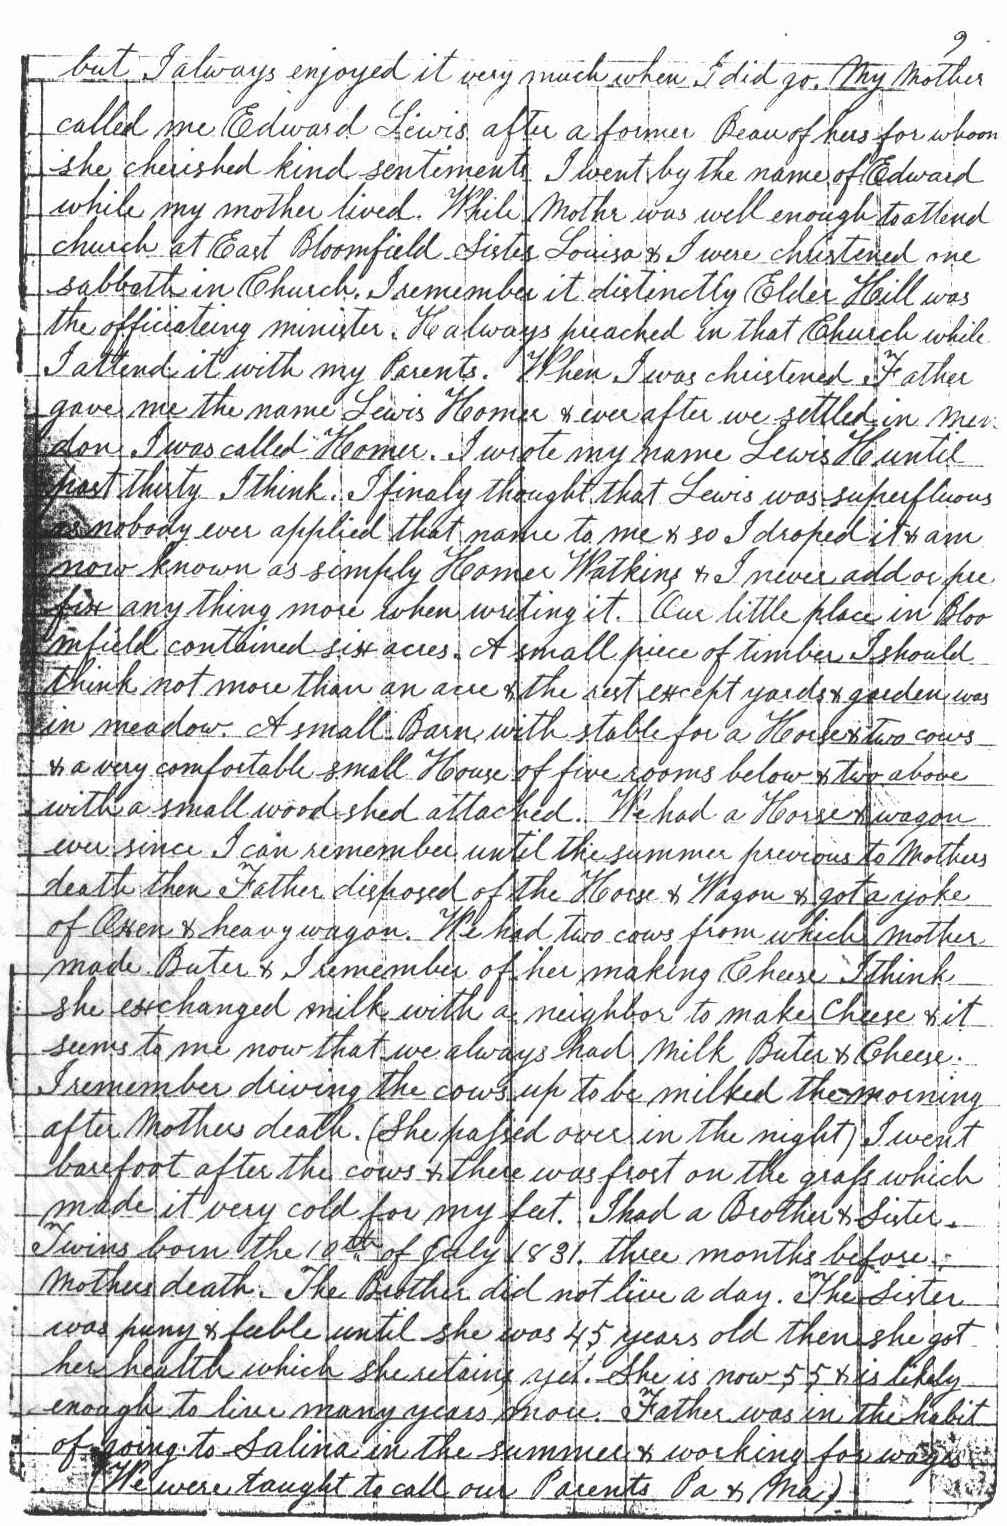 9
but I always enjoyed it very much when I did go. My Mother
called me Edward Lewis after a former Beau of hers for whoom
she cherished kind sentiments I went by the name of Edward
while my mother lived. While Mothr was well enough to attend
church at East Bloomfield Sister Louisa & I were christened one
sabbath in Church. I remember it distinctly Elder Hill was
the officiateing minister. H always preached in that Church while
I attend it with my Parents. When I was christened Father
gave me the name Lewis Homer & ever after we settled in Men
don I was called Homer. I wrote my name Lewis H until
past thirty I think. I finaly thought that Lewis was superfluous
as nobody ever applied that name to me & so I droped it & am
now known as simply Homer Watkins & I never add or pre
fix any thing more when writing it. Our little place in Bloo
mfield contained six acres. A small piece of timber I should
think not more than an acre & the rest except yards & garden was
in meadow. A small Barn with stable for a Horse & two cows
& a very comfortable small House of five rooms below & two above
with a small wood shed attached. We had a Horse & wagon
ever since I can remember until the summer previous to Mothers
death then Father disposed of the Horse & Wagon & got a yoke
of Oxen & heavy wagon. We had two cows from which mother
made Buter & I remember of her making Cheese I think
she exchanged milk with a neighbor to make Cheese & it
seems to me now that we always had Milk Buter & Cheese.
I remember driving the cows up to be milked the morning
after Mothers death. (She passed over in the night) I went
barefoot after the cows & there was frost on the grass which
made it very cold for my feet. I had a Brother & Sister.
Twins born the 10th of July 1831. three months before
Mothers death. The Brother did not live a day. The Sister
was puny & feeble until she was 45 years old then she got
her health which she retains yet. She is now 55 & is likely
enough to live many years more. Father was in the habit
of going to Salina in the summer & working for wages
(We were taught to call our Parents Pa & Ma)